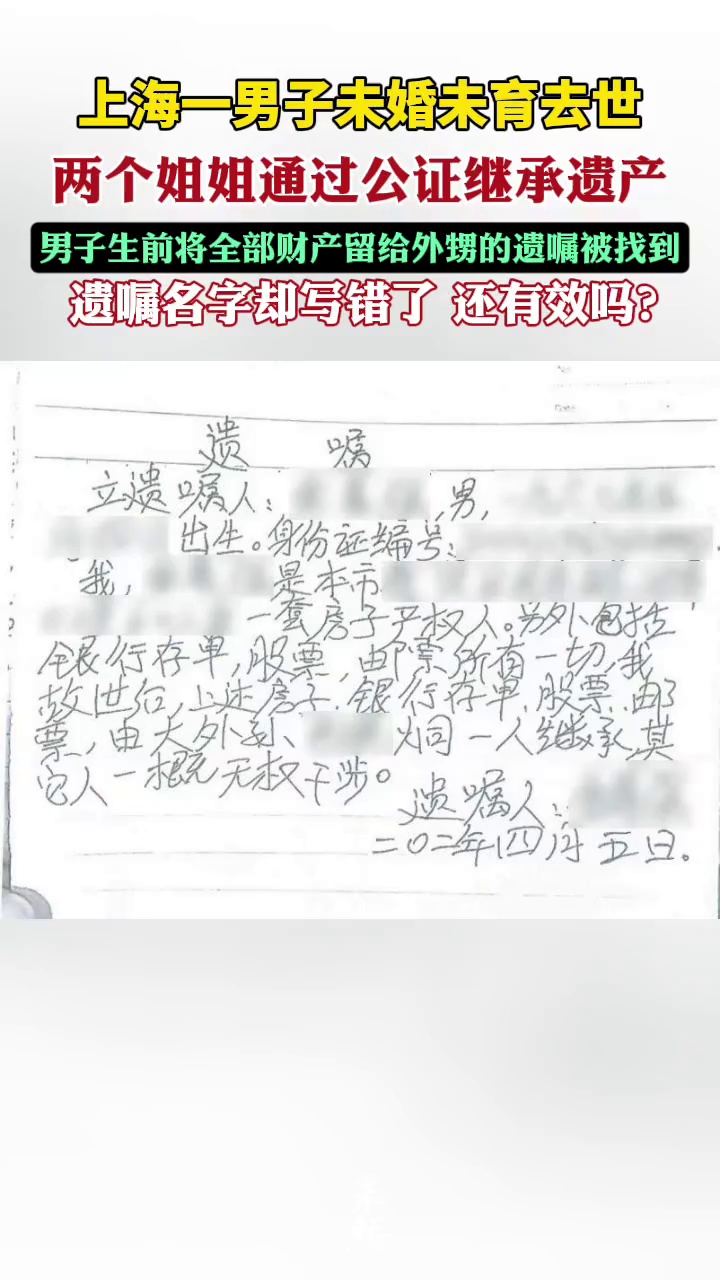 上海一男子未婚未育去世
两个姐姐通过公证继承遗产
男子生前将全部财产留给外甥的遗嘱被找到
遗嘱名字却写错了 还有效吗?
遗 嘱
立遗嘱人: ,男,
出生。身份证编号:
我, 是本市
一套房子产权人。另外包括
银行存单,股票,邮票所有一切,我
故世后,上述房子.银行存单.股票.邮
票,由大外孙 炯一人继承,其
它人一概无权干涉。
遗嘱人:
二〇二年四月五日.